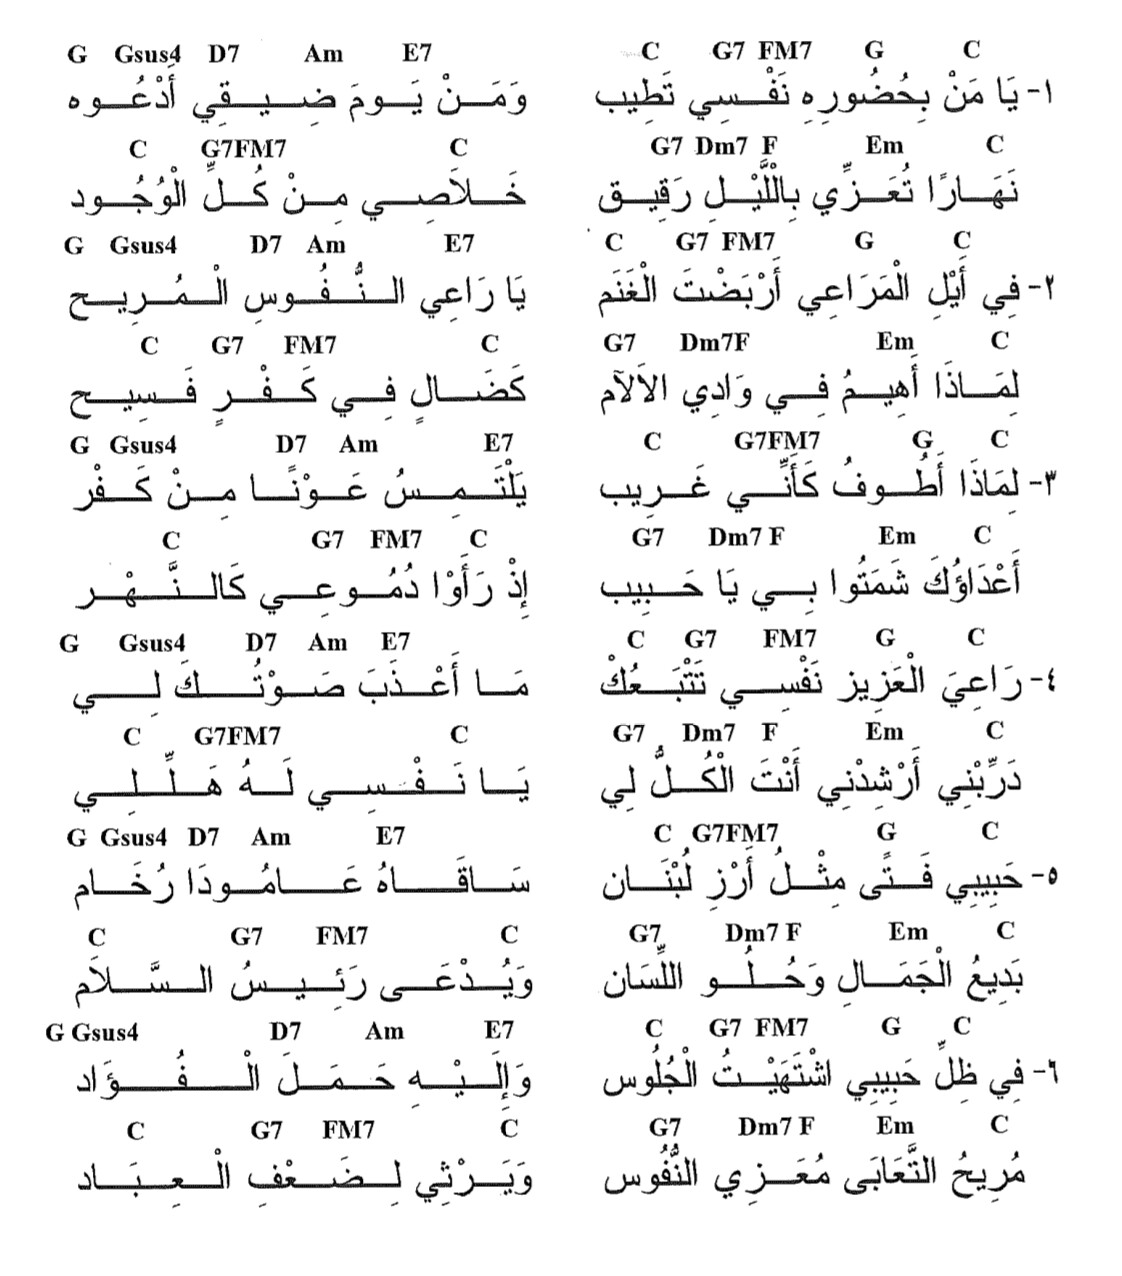 G Gsus4 D7 Am E7 C G7 FM7 G C
١- يَا مَنْ بِحُضُورِهِ نَفْسِي تَطِيب وَمَنْ يَومَ ضِيقِي أَدْعُوه
C G7FM7 C G7 Dm7 F Em C
نَهَارًا تُعَزِّي بِاللَّيْلِ رَقِيق خَلاَصِي مِنْ كُلِّ الْوُجُود
G Gsus4 D7 Am E7 C G7 FM7 G C
٢- فِي أَيْلِ الْمَرَاعِي أَرْبَضْتَ الْغَنَم يَا رَاعِي النُّفُوسِ الْمُرِيح
C G7 FM7 C G7 Dm7F Em C
لِمَاذَا أَهِيمُ فِي وَادِي الاَلآم كَضَالٍ فِي كَفْرٍ فَسِيح
G Gsus4 D7 Am E7 C G7FM7 G C
٣- لِمَاذَا أَطُوفُ كَأَنِّي غَرِيب يَلْتَمِسُ عَوْنًا مِنْ كَفْر
C G7 FM7 C G7 Dm7 F Em C
أَعْدَاؤُكَ شَمَتُوا بِي يَا حَبِيب إِذْ رَأَوْا دُمُوعِي كَالنَّهْر
G Gsus4 D7 Am E7 C G7 FM7 G C
٤- رَاعِيَ الْعَزِيز نَفْسِي تَتْبَعُكْ مَا أَعْذَبَ صَوْتُكَ لِي
C G7FM7 C G7 Dm7 F Em C
دَرِّبْنِي أَرْشِدْنِي أَنْتَ الْكُلُّ لِي يَا نَفْسِي لَهُ هَلِّلِي
G Gsus4 D7 Am E7 C G7FM7 G C
٥- حَبِيبِي فَتًى مِثْلُ أَرْزِ لُبْنَان سَاقَاهُ عَامُودَا رُخَام
C G7 FM7 C G7 Dm7 F Em C
بَدِيعُ الْجَمَالِ وَحُلُو اللِّسَان وَيُدْعَى رَئِيسُ السَّلاَم
G Gsus4 D7 Am E7 C G7 FM7 G C
٦- فِي ظِلِّ حَبِيبِي اشْتَهَيْتُ الْجُلُوس وَإِلَيْهِ حَمَلَ الْفُؤَاد
C G7 FM7 C G7 Dm7 F Em C
مُرِيحُ التَّعَابَى مُعَزِي النُّفُوس وَيَرْثِي لِضَعْفِ الْعِبَاد